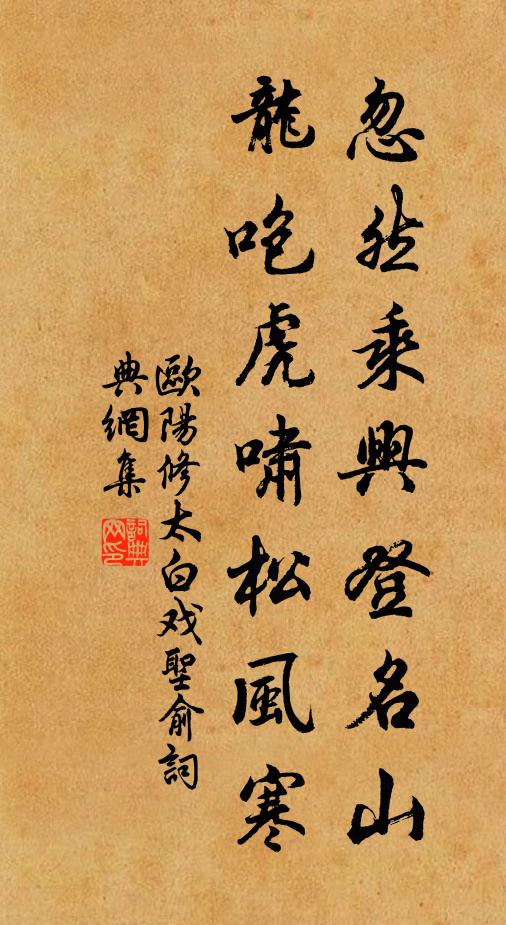 忽然乘興登名山
龍咆虎嘯松風寒
歐陽修太白戏聖俞詞
典網集
詞典网印